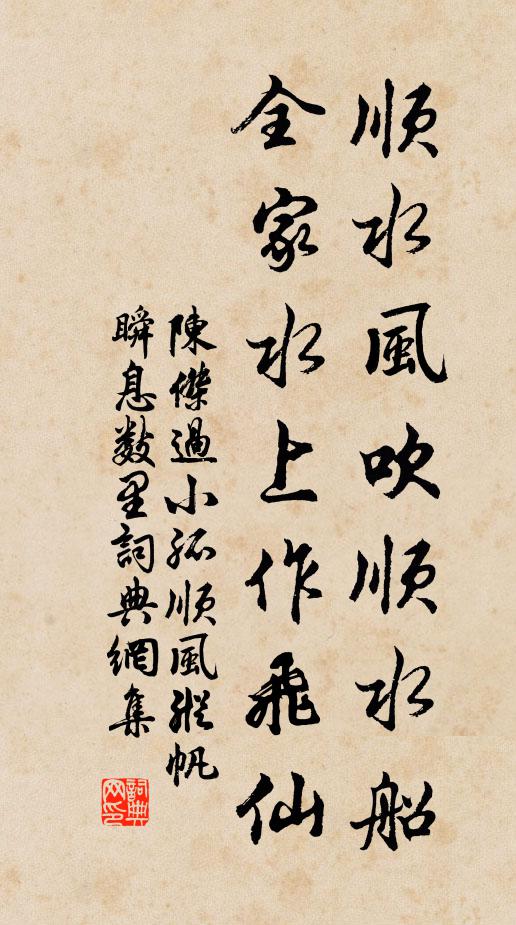 順水風吹順水船
全家水上作飛仙
陳傑過小孤順風縱帆
瞬息數里詞典網集
詞典
网印